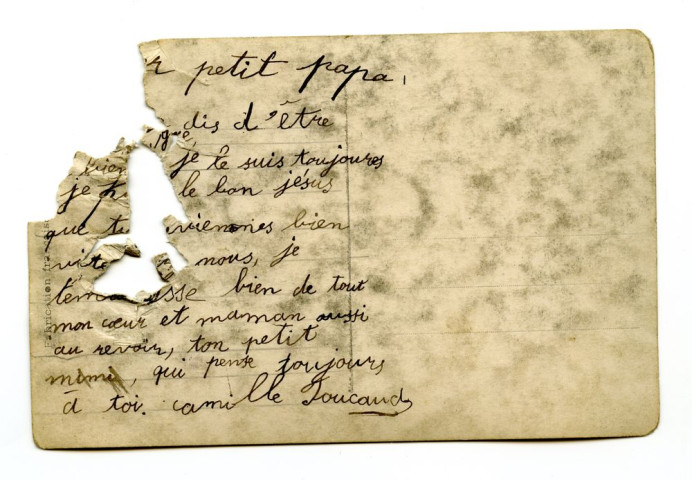 r petit papa,
que dis d'être
bien je te suis toujours
je le bon jésus
que tu viennes bien
vite nous, je
t'em asse bien de tout
mon cœur et maman aussi
au revoir, ton petit
mimi, qui pense toujours
à toi. camille Toucaud
Fabrication fra